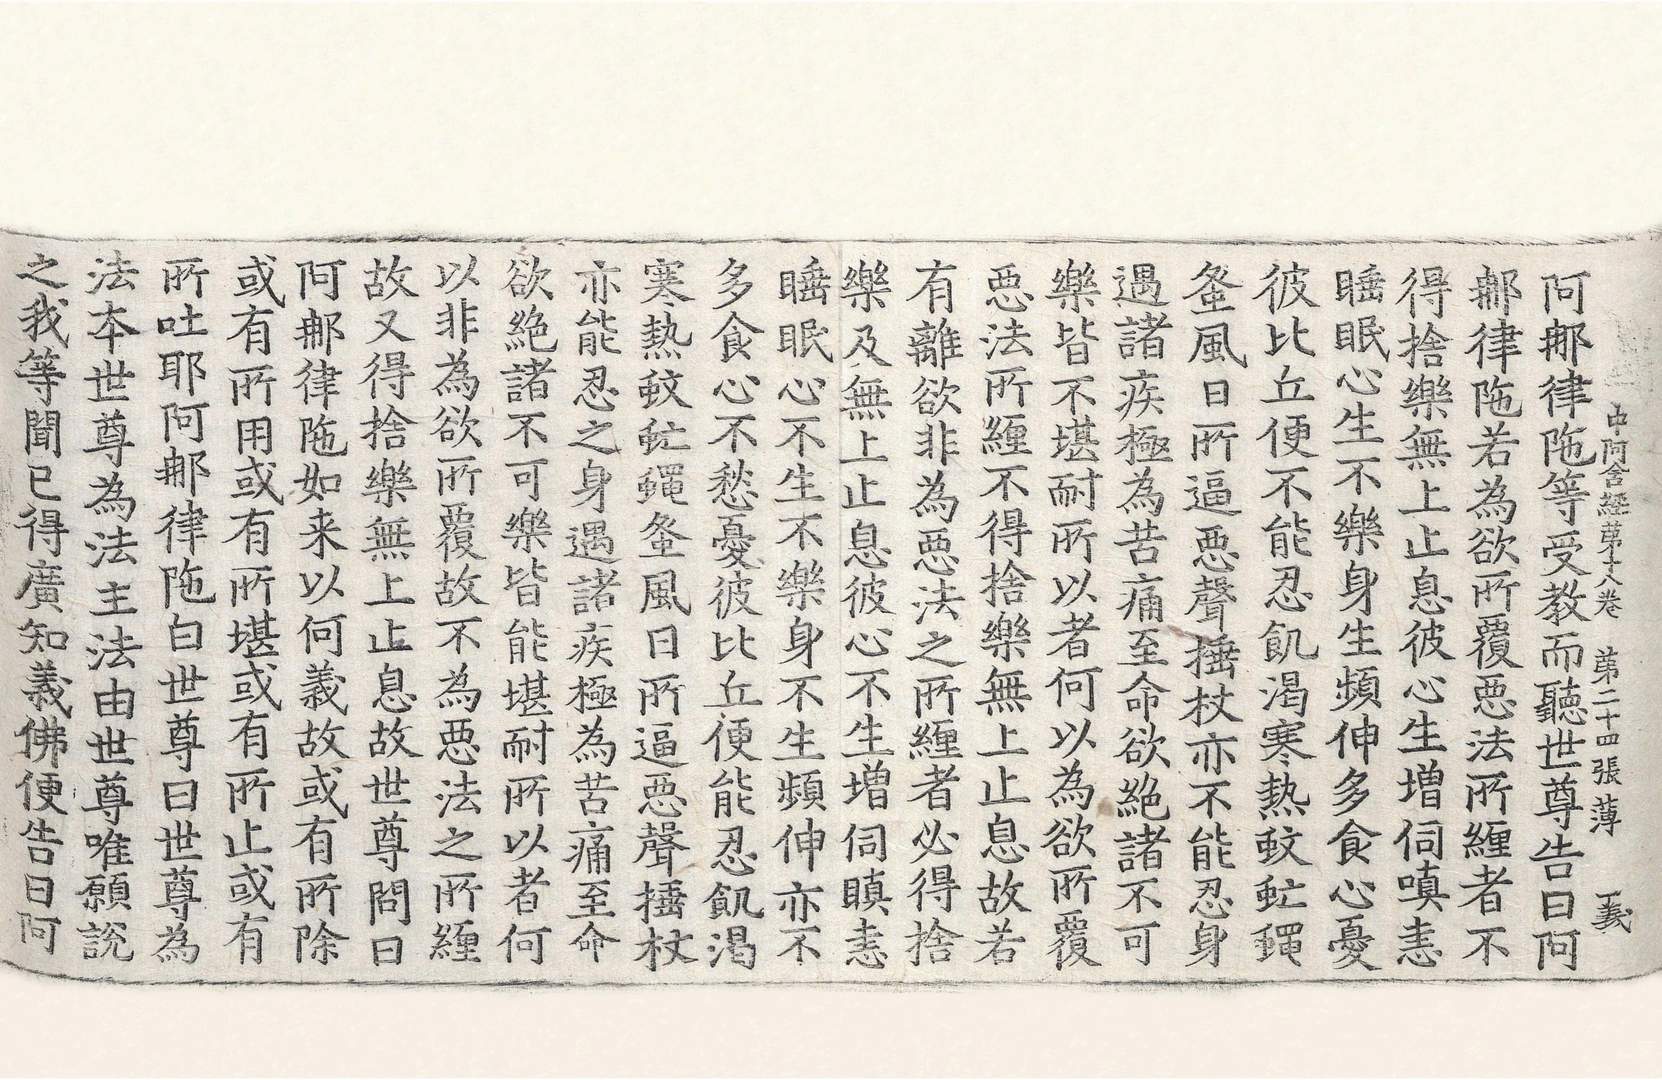 中阿含經第十八卷 第二十四張 薄 義
阿那律陁等受教而聽世尊告曰阿
那律陁若為欲所覆惡法所纏者不
得捨樂無上止息彼心生增伺嗔恚
睡眠心生不樂身生頻伸多食心憂
彼比丘便不能忍飢渴寒熱蚊虻蠅
蚤風日所逼惡聲捶杖亦不能忍身
遇諸疾極為苦痛至命欲絶諸不可
樂皆不堪耐所以者何以為欲所覆
惡法所纏不得捨樂無上止息故若
有離欲非為惡法之所纏者必得捨
樂及無上止息彼心不生增伺瞋恚
睡眠心不生不樂身不生頻伸亦不
多食心不愁憂彼比丘便能忍飢渴
寒熱蚊虻蠅蚤風日所逼惡聲捶杖
亦能忍之身遇諸疾極為苦痛至命
欲絶諸不可樂皆能堪耐所以者何
以非為欲所覆故不為惡法之所纏
故又得捨樂無上止息故世尊問曰
阿那律陁如来以何義故或有所除
或有所用或有所堪或有所止或有
所吐耶阿那律陁白世尊曰世尊為
法本世尊為法主法由世尊唯願說
之我等聞已得廣知義佛便告曰阿